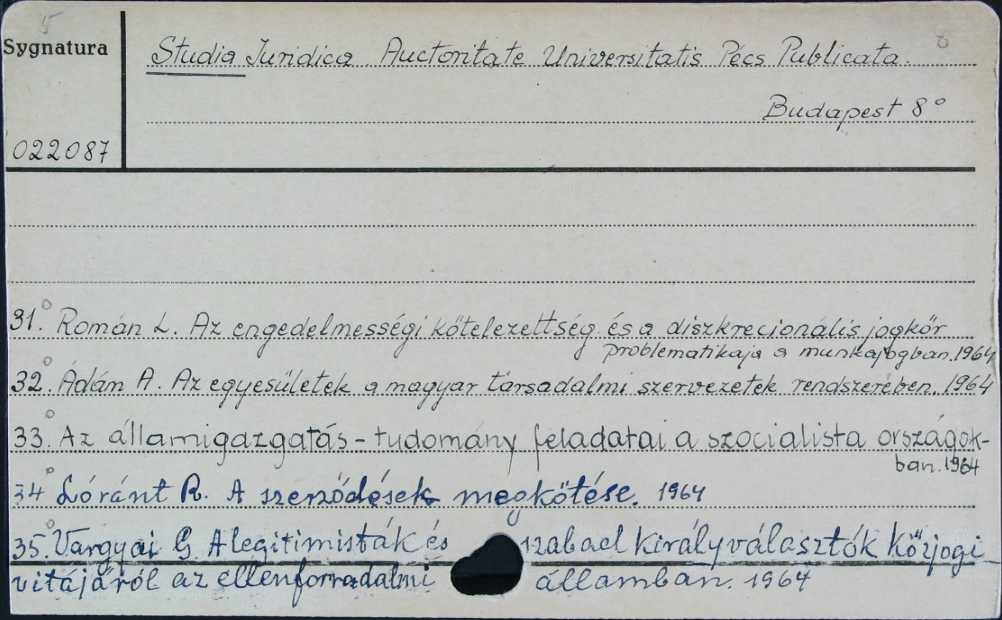 5
8
Sygnatura
Studia Juridica Auctoritate Universitatis Pécs Publicata.
Budapest 8°
022087
31.° Román L. Az engedelmességi kötelezettség és a diszkrecionális jogkör
problematikaja a munkajogban. 1964
32.° Ádán A. Az egyesületek a magyar társadalmi szervezetek rendszerében. 1964
33.° Az államigazgatás-tudomány feladatai a szocialista országok-
ban. 1964
34° Lóránt R. A szerződések megkötése. 1964
35.° Vargyai G A legitimisták és szabad királyválasztók közjogi
vitájáról az ellenforradalmi államban. 1964